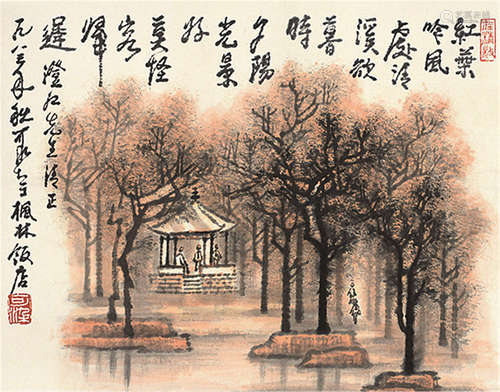 紅葉
吟風
處清
溪欲
暮時
夕陽
光景
好
莫怪
客
歸
遲
澄江先生清正
一九八三年秋可 楓林飯店